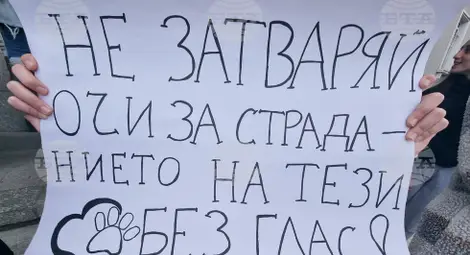 НЕ ЗАТВАРЯЙ
ОЧИ ЗА СТРАДА-
НИЕТО НА ТЕЗИ
БЕЗ ГЛАС!